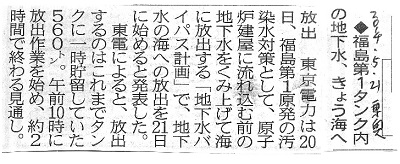 2014.5.21 東奥
◆福島第1タンク内
の地下水、きょう海へ
放出　東京電力は20
日、福島第1原発の汚
染水対策として、原子
炉建屋に流れ込む前の
地下水をくみ上げて海
に放出する「地下水バ
イパス計画」で、地下
水の海への放出を21日
に始めると発表した。
東電によると、放出
するのはこれまでタン
クに一時貯留していた
560㌧。午前10時に
放出作業を始め、約2
時間で終わる見通し。